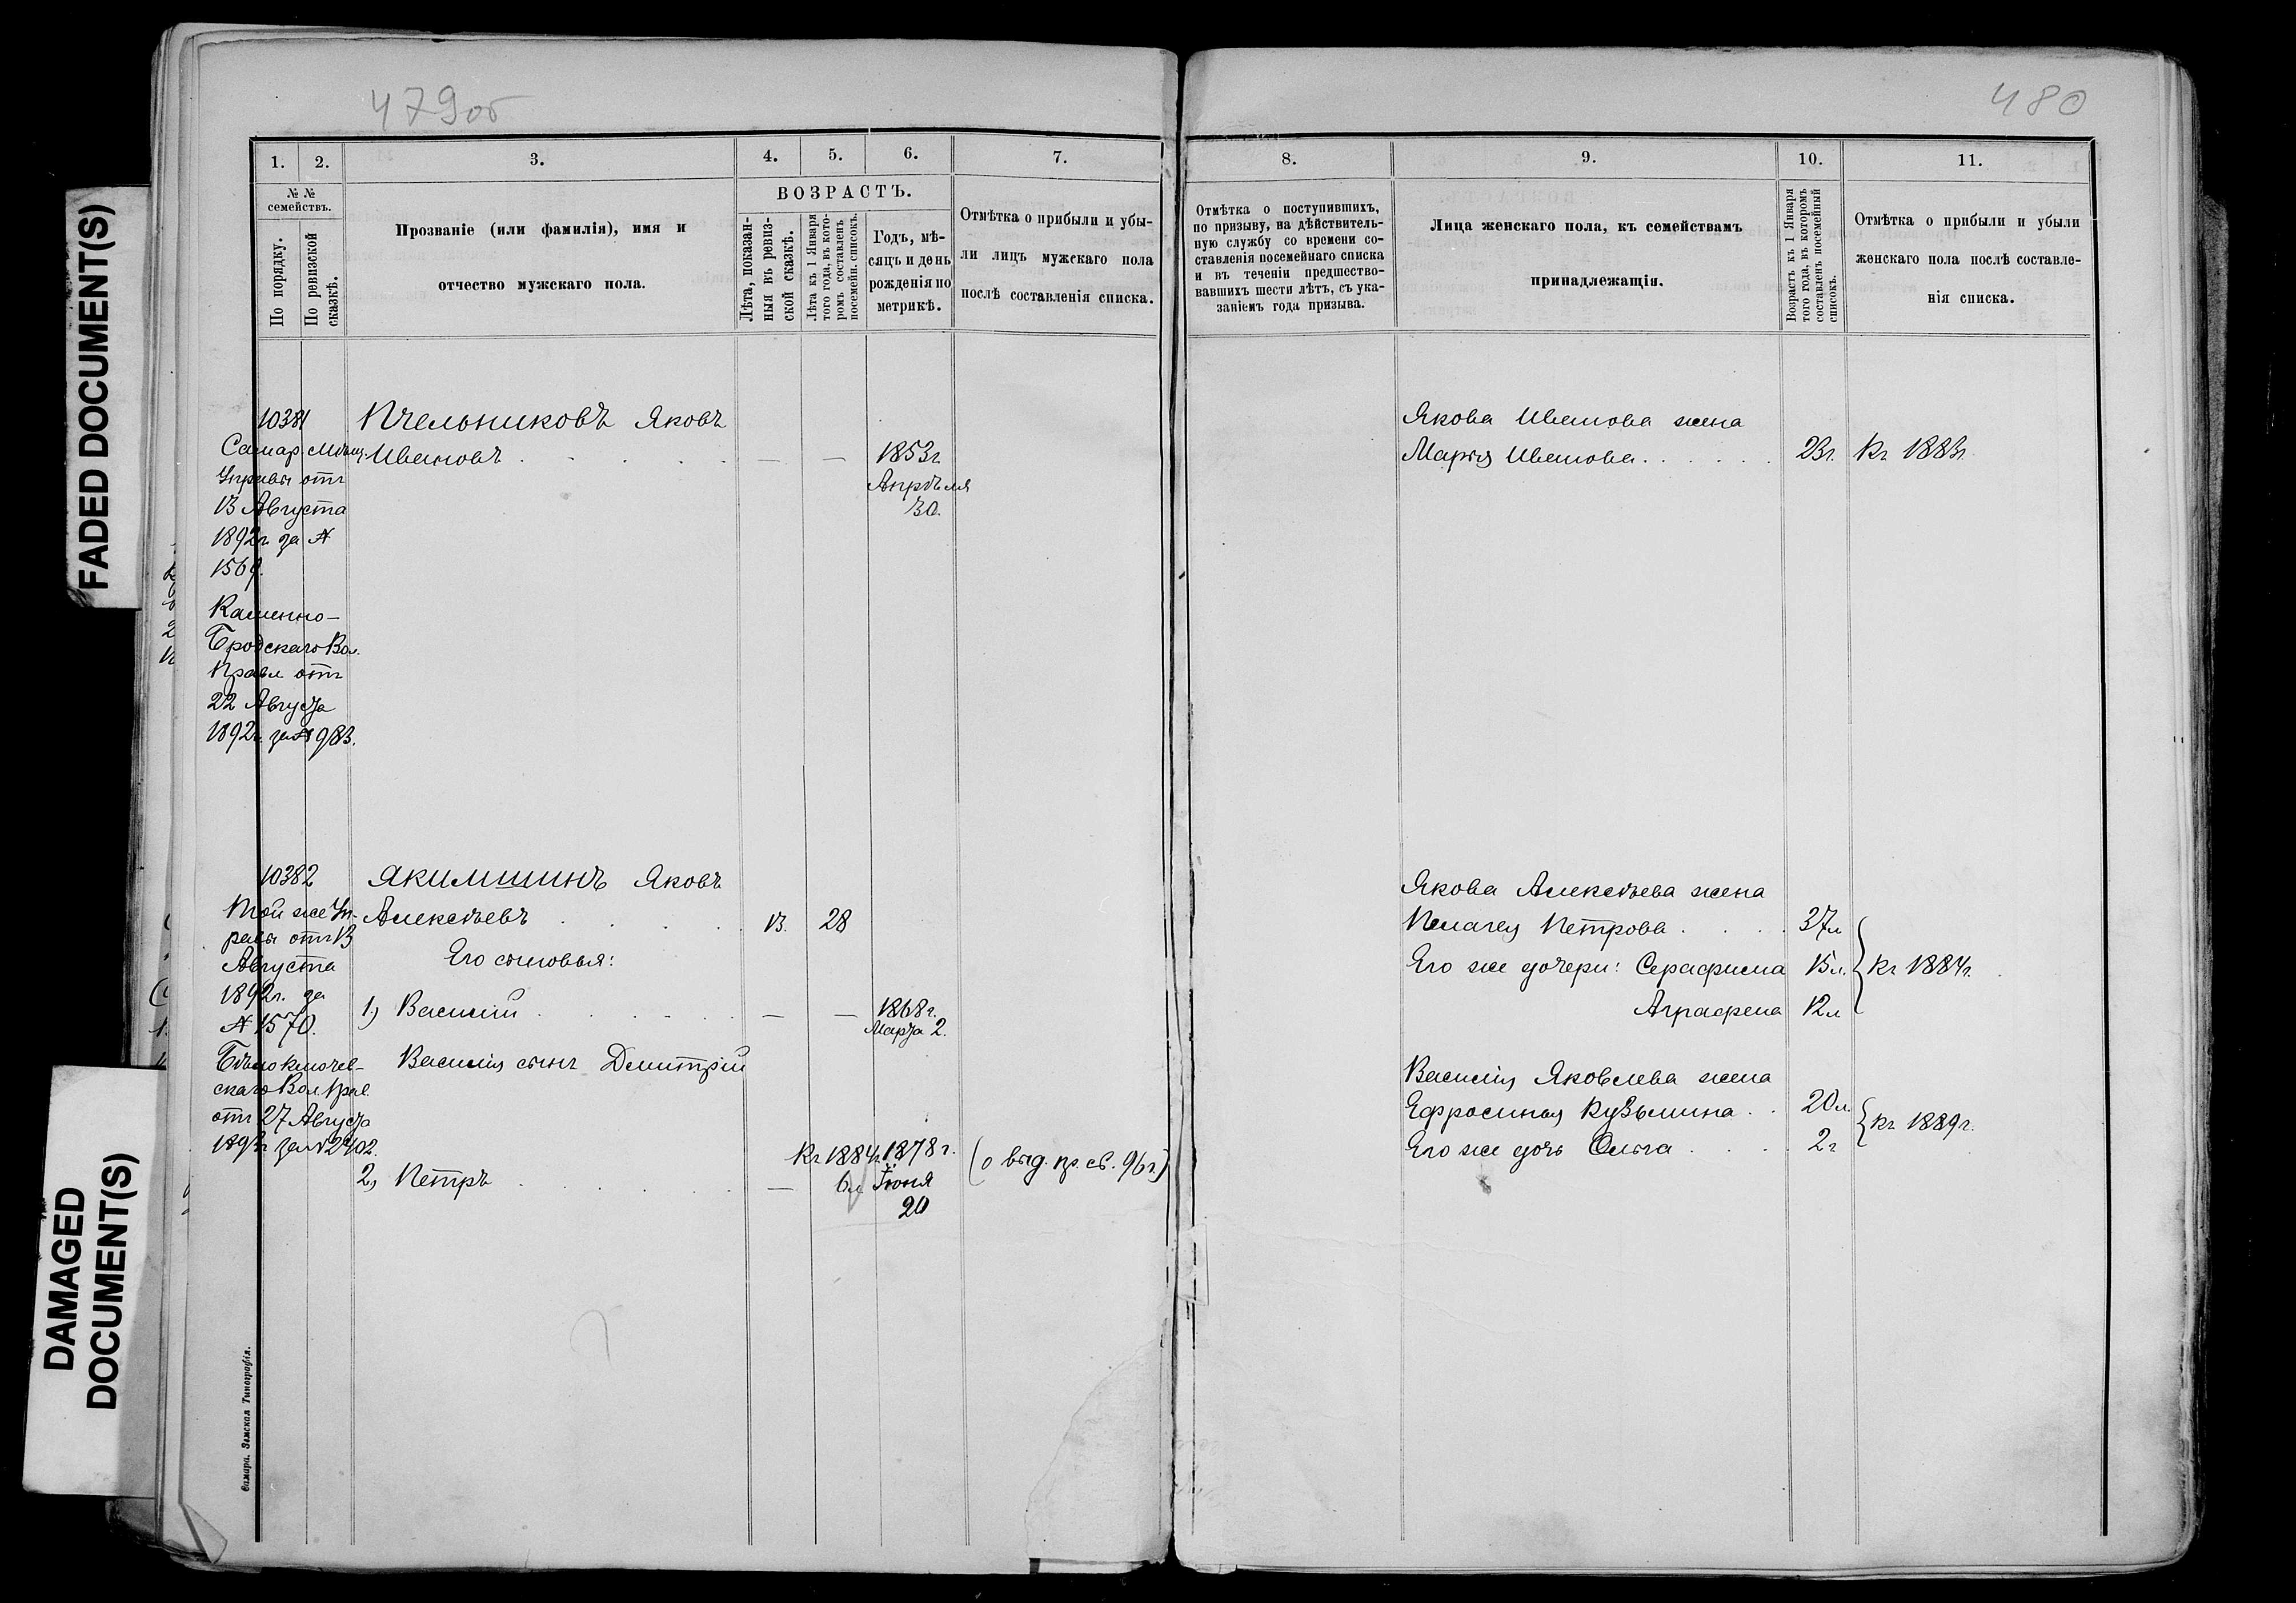 FADED DOCUMENT(S)
DAMAGED
DOCUMENT(S)
479об
1.
2.
3.
4.
5.
6.
7.
№ №
семействъ.
По порядку.
По ревизской
сказкѣ.
Прозваніе (или фамилія), имя и
отчество мужскаго пола.
ВОЗРАСТЪ.
Лѣта, показан-
ныя въ ревиз-
ской сказкѣ.
Лѣта къ 1 Января
того года, въ кото-
ромъ составленъ
посемейн. списокъ.
Годъ, мѣ-
сяцъ и день
рожденія по
метрикѣ.
Отмѣтка о прибыли и убы-
ли лицъ мужскаго пола
послѣ составленія списка.
10381
Самар. Мѣщ.
Управы отъ
13 Августа
1892г. за №
1569.
Каменно-
Бродскаго Вол.
Правл отъ
22 Августа
1892г. за № 983.
Пчельниковъ Яковъ
Ивановъ . . . . . — —
1853г
Апрѣля
30.
10382
Той же Уп-
равы отъ 13
Августа
1892г. за
№ 1570.
Бѣлоключев-
скаго Вол. Прав.
отъ 27 Августа
1892г за № 2402.
Якимшинъ Яковъ
Алексѣевъ . . . . 13. 28
Его сыновья:
1, Василій . . . . . — —
1868г.
Марта 2.
Василія сынъ Дмитрій
2, Петръ . . . . . —
Къ 1884г.
6л
1878г.
Іюня
20
(о выд. пр. св. 96г.)
Самара. Земская Типографія.
480
8.
9.
10.
11.
Отмѣтка о поступившихъ,
по призыву, на дѣйствитель-
ную службу со времени со-
ставленія посемейнаго списка
и въ теченіи предшество-
вавшихъ шести лѣтъ, съ ука-
заніемъ года призыва.
Лица женскаго пола, къ семействамъ
принадлежащія.
Возрастъ къ 1 Января
того года, въ которомъ
составленъ посемейный
списокъ.
Отмѣтка о прибыли и убыли
женскаго пола послѣ составле-
нія списка.
Якова Иванова жена
Марья Иванова . . . . . 23г. Къ 1883г.
Якова Алексѣева жена
Пелагея Петрова . . . . 37л
Его же дочери: Серафима 15л. Къ 1884г.
Аграфена 12л
Василія Яковлева жена
Ефросинья Кузьмина . . 20л.
Къ 1889г.
Его же дочь Ольга . . . . 2г